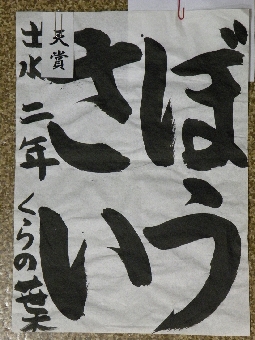 ぼう
さい
土水二年 くらの葉
天賞